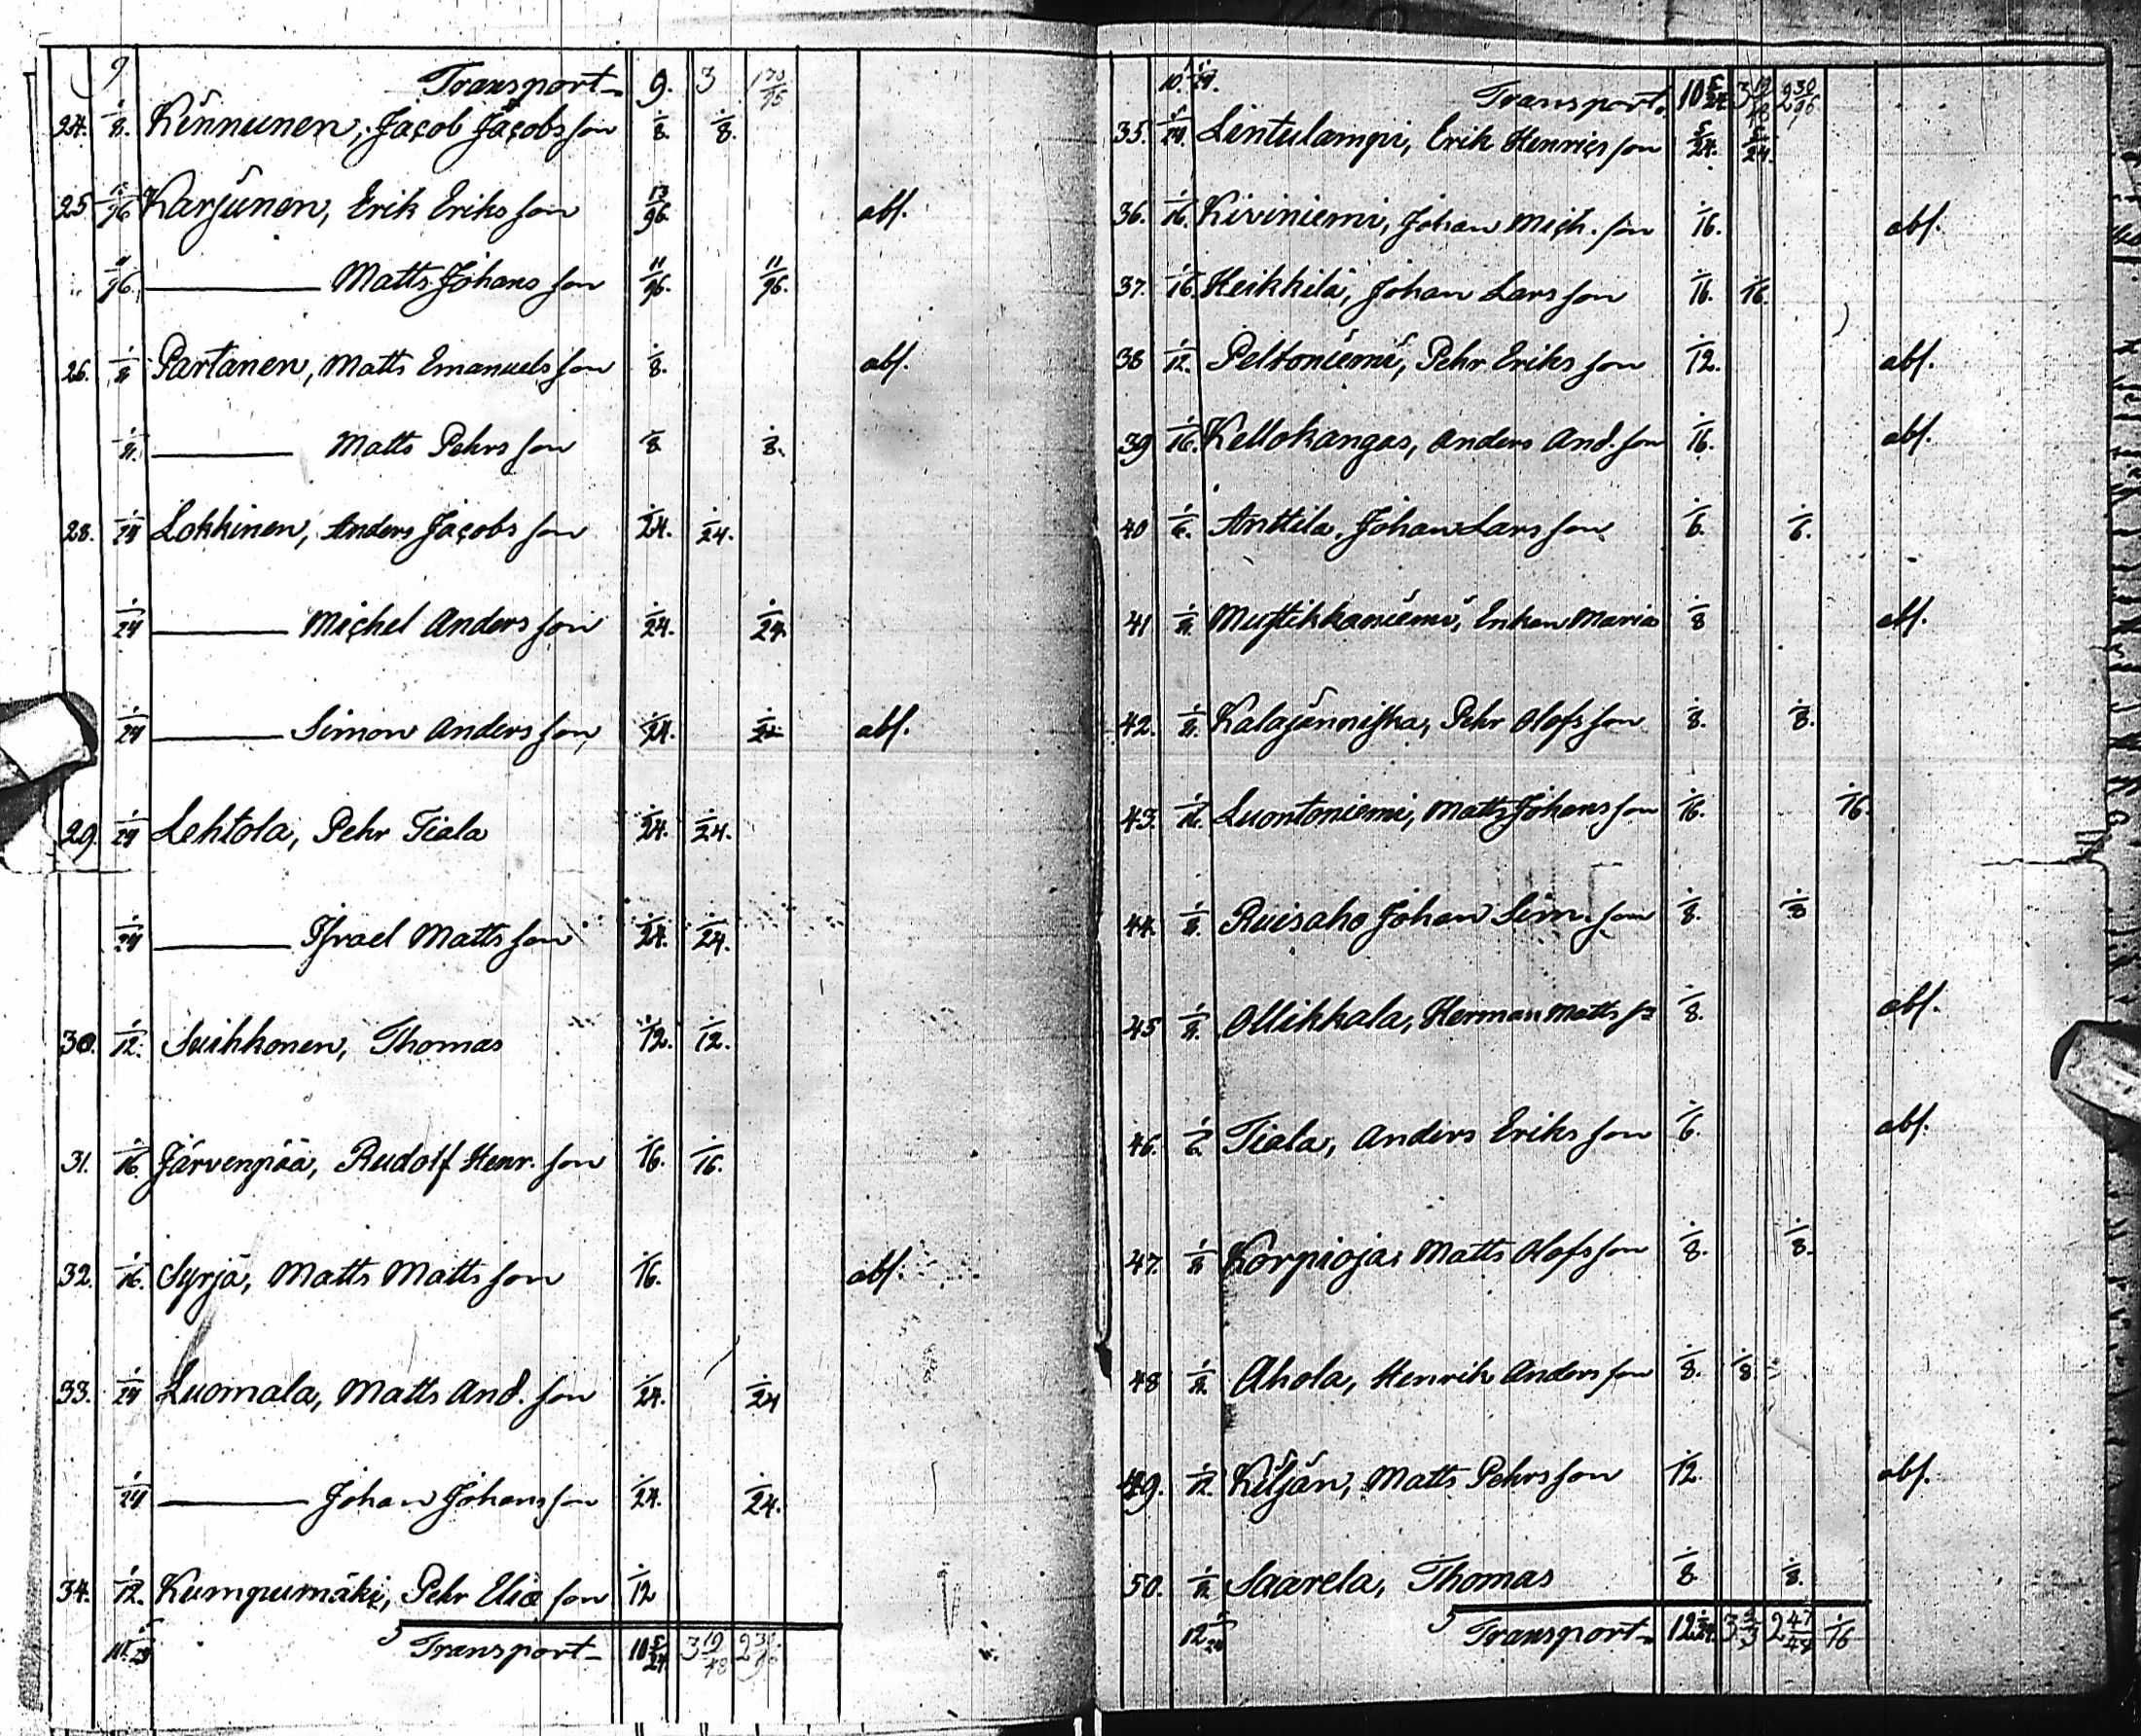 9 Transport 9. 3
24. 1/8. Kinnunen, Jacob Jacobsson 1/8. 1/8.
25 13/96 Karjunen, Erik Eriksson 13/96. abs.
11/96 Matts Johansson 11/96. 11/96.
26. 1/8 Partanen, Matts Emanuelsson 1/8. abs.
1/8. Matts Pehrsson 1/8 1/8.
28. 1/24 Lokkinen, Anders Jacobsson 1/24. 1/24.
1/24 Michel Andersson 1/24. 1/24.
1/24 Simon Andersson 1/24. abs.
29. 1/24 Lehtola, Pehr Tiala 1/24. 1/24.
1/24 Israel Mattsson 1/24. 1/24.
30. 1/12. Suihkonen, Thomas 1/12. 1/12.
31. 1/16. Järvenpää, Rudolf Henr.son 1/16. 1/16.
32. 1/16. Syrjä, Matts Mattsson 1/16. abs.
33. 1/24 Luomala, Matts And.son 1/24. 1/24
1/24 Johan Johansson 1/24. 1/24.
34. 1/12. Kumpumäki, Pehr Eliasson 1/12
Transport 10 5/24 3 19/48
Transport. 10 5/24 3 19/48 2 30/96
35. 5/24. Lintulampi, Erik Henricsson 5/24. 5/24.
36. 1/16. Kiviniemi, Johan Mich.son 1/16. abs.
37. 1/16. Heikkilä, Johan Larsson 1/16. 1/16.
38 1/12. Peltoniemi, Pehr Eriksson 1/12. abs.
39 1/16. Kellokangas, Anders And.son 1/16. abs.
40 1/6. Anttila, Johan Larsson 1/6. 1/6.
41 1/8. Mustikkaniemi, Enkan Maria 1/8 abs.
42. 1/8. Kalajänniska, Pehr Olofsson 1/8. 1/8.
43. 1/16. Luontoniemi, Matts Johansson 1/16. 1/16.
44. 1/8. Ruisaho Johan Sim.son 1/8. 1/8
45 1/8. Ollikkala, Herman Mattss 1/8. abs.
46. 1/6 Tiala, Anders Eriksson 1/6. abs.
47. 1/8 Korpioja, Matts Olofsson 1/8. 1/8.
48 1/8 Ahola, Henrik Andersson 1/8. 1/8.
49. 1/12 Kiljän, Matts Pehrsson 1/12. abs.
50. 1/8 Saarela, Thomas 1/8. 1/8.
Transport 12 1/24. 2 47/48 1/16